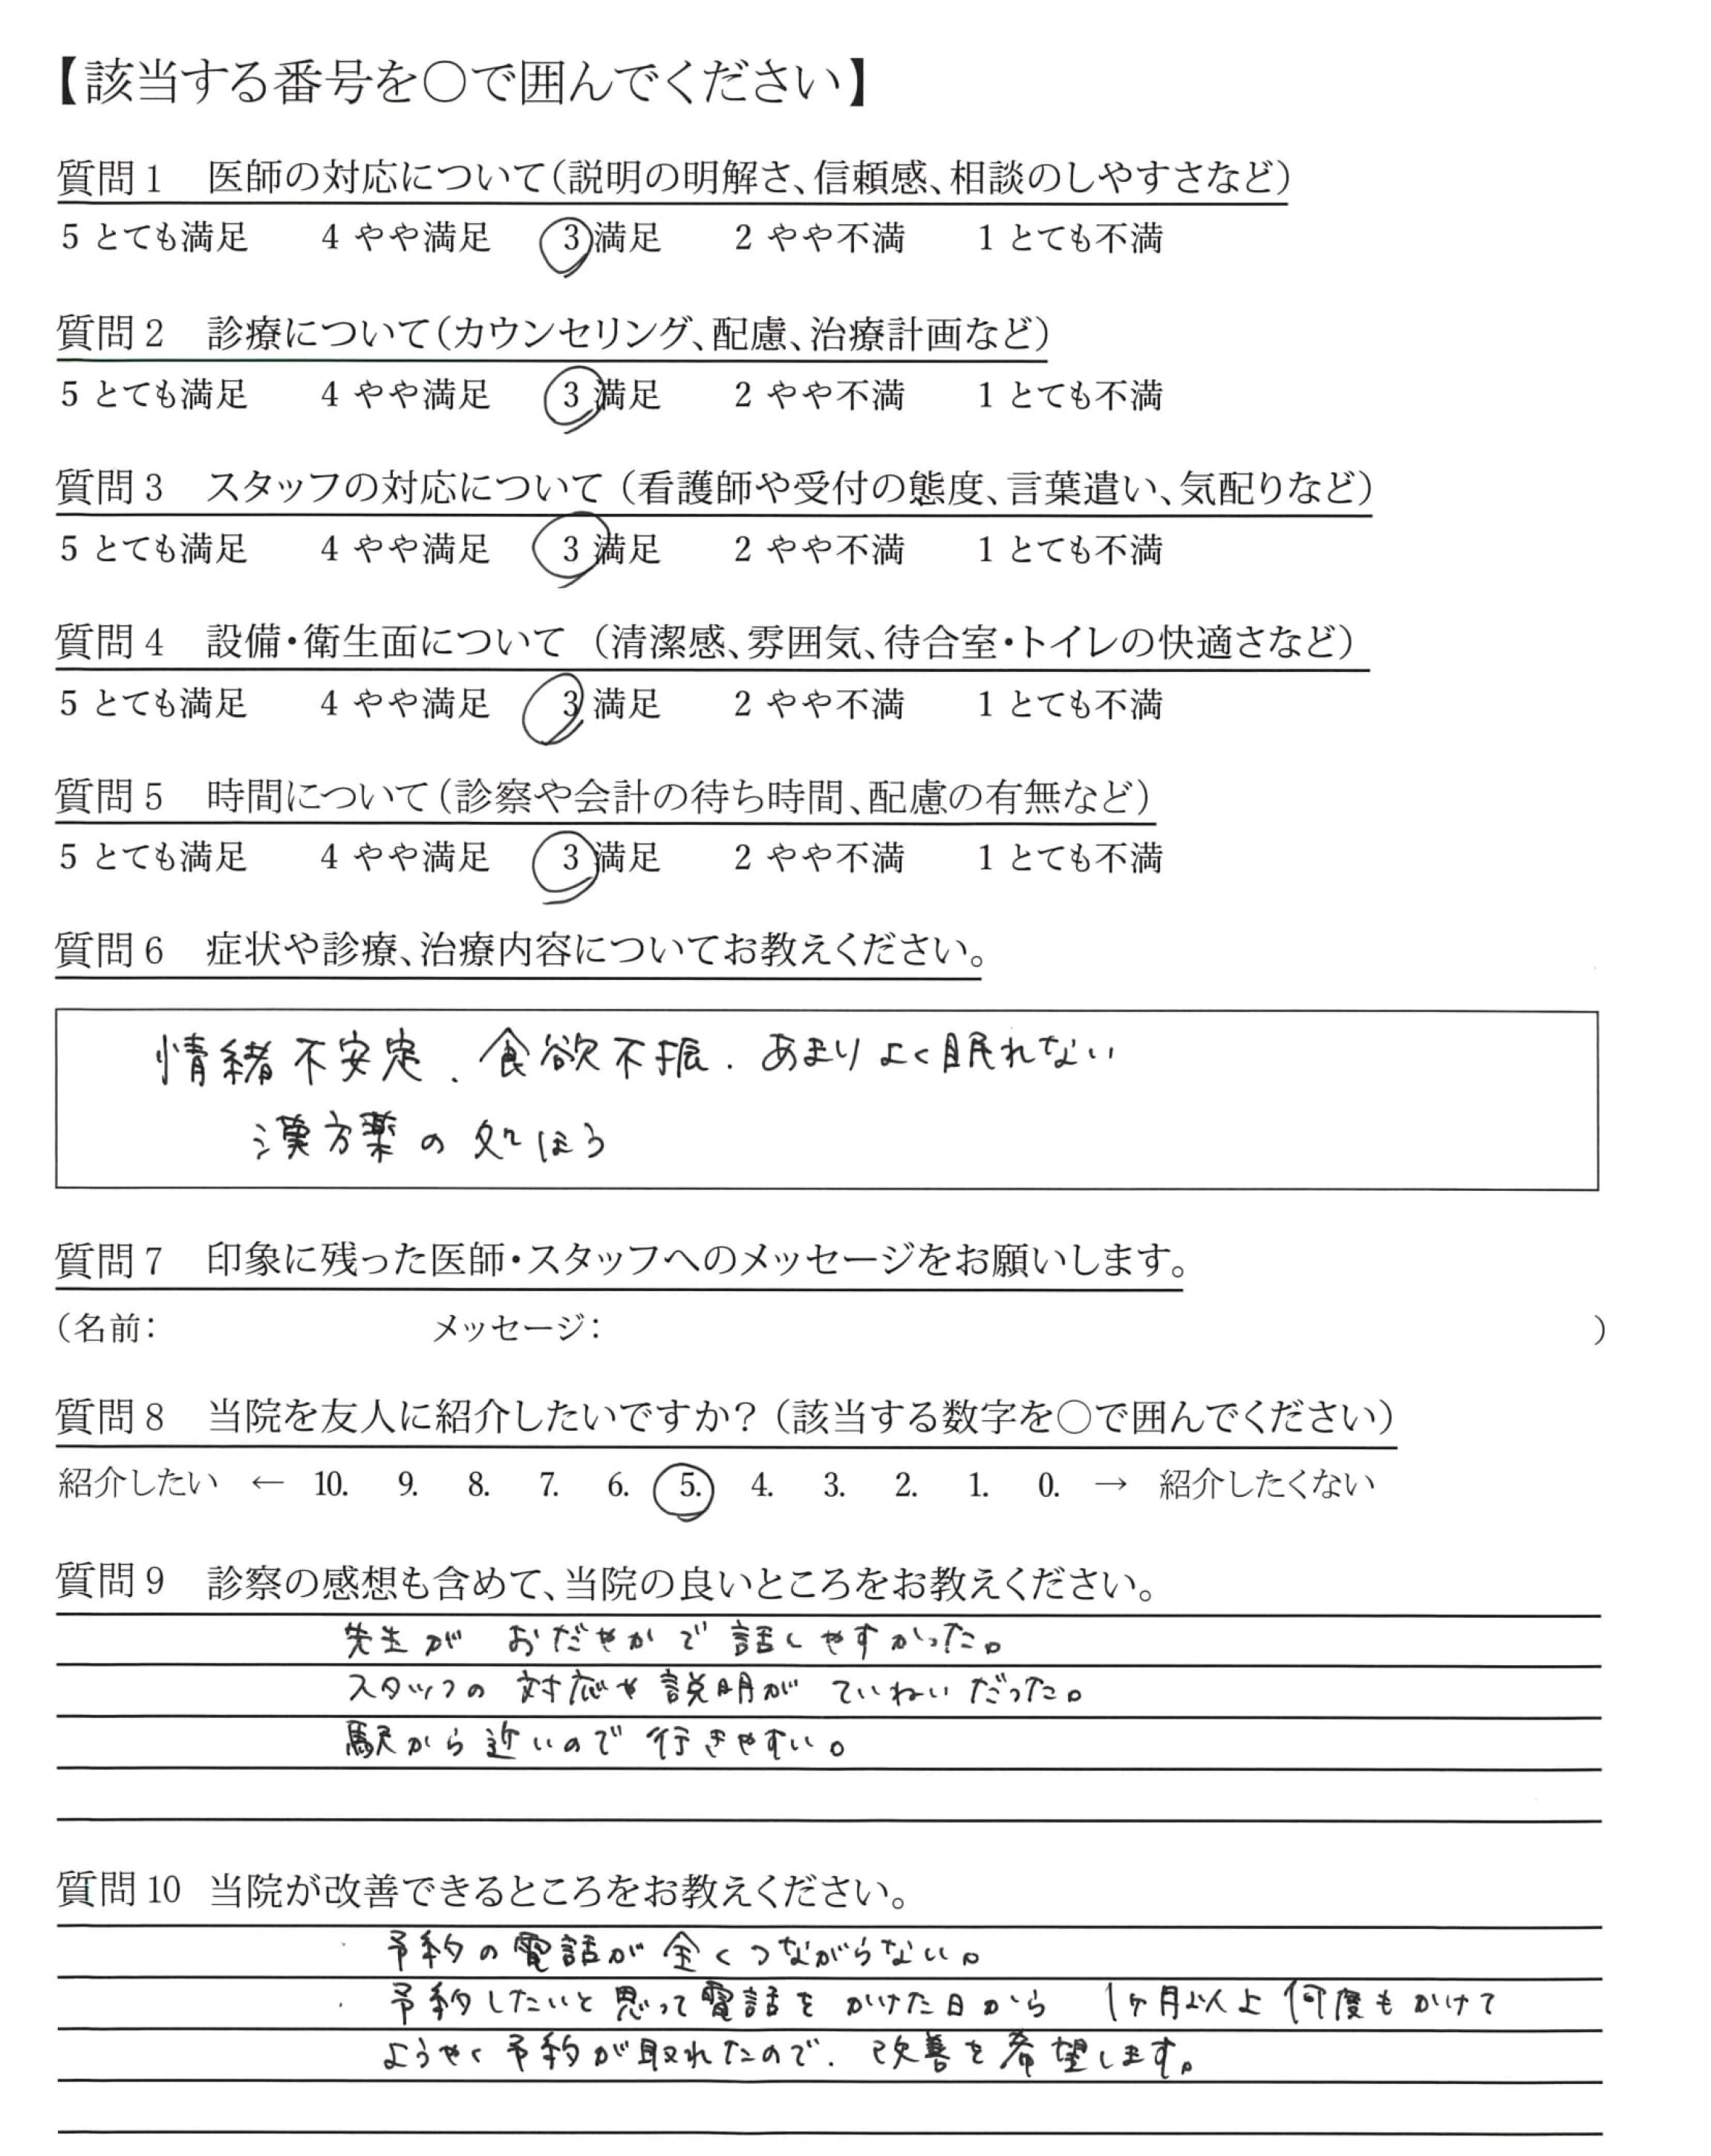 【該当する番号を〇で囲んでください】
質問1 医師の対応について（説明の明解さ、信頼感、相談のしやすさなど）
5 とても満足 4 やや満足 3 満足 2 やや不満 1 とても不満
質問2 診療について（カウンセリング、配慮、治療計画など）
5 とても満足 4 やや満足 3 満足 2 やや不満 1 とても不満
質問3 スタッフの対応について（看護師や受付の態度、言葉遣い、気配りなど）
5 とても満足 4 やや満足 3 満足 2 やや不満 1 とても不満
質問4 設備・衛生面について （清潔感、雰囲気、待合室・トイレの快適さなど）
5 とても満足 4 やや満足 3 満足 2 やや不満 1 とても不満
質問5 時間について（診察や会計の待ち時間、配慮の有無など）
5 とても満足 4 やや満足 3 満足 2 やや不満 1 とても不満
質問6 症状や診療、治療内容についてお教えください。
情緒不安定、食欲不振、あまりよく眠れない
漢方薬の処ほう
質問7 印象に残った医師・スタッフへのメッセージをお願いします。
（名前： メッセージ： ）
質問8 当院を友人に紹介したいですか？（該当する数字を〇で囲んでください）
紹介したい ← 10. 9. 8. 7. 6. 5. 4. 3. 2. 1. 0. → 紹介したくない
質問9 診察の感想も含めて、当院の良いところをお教えください。
先生が おだやかで話しやすかった。
スタッフの対応や説明が ていねいだった。
駅から近いので行きやすい。
質問10 当院が改善できるところをお教えください。
・予約の電話が全くつながらない。
・予約したいと思って電話をかけた日から 1ヶ月以上何度もかけて
ようやく予約が取れたので、改善を希望します。